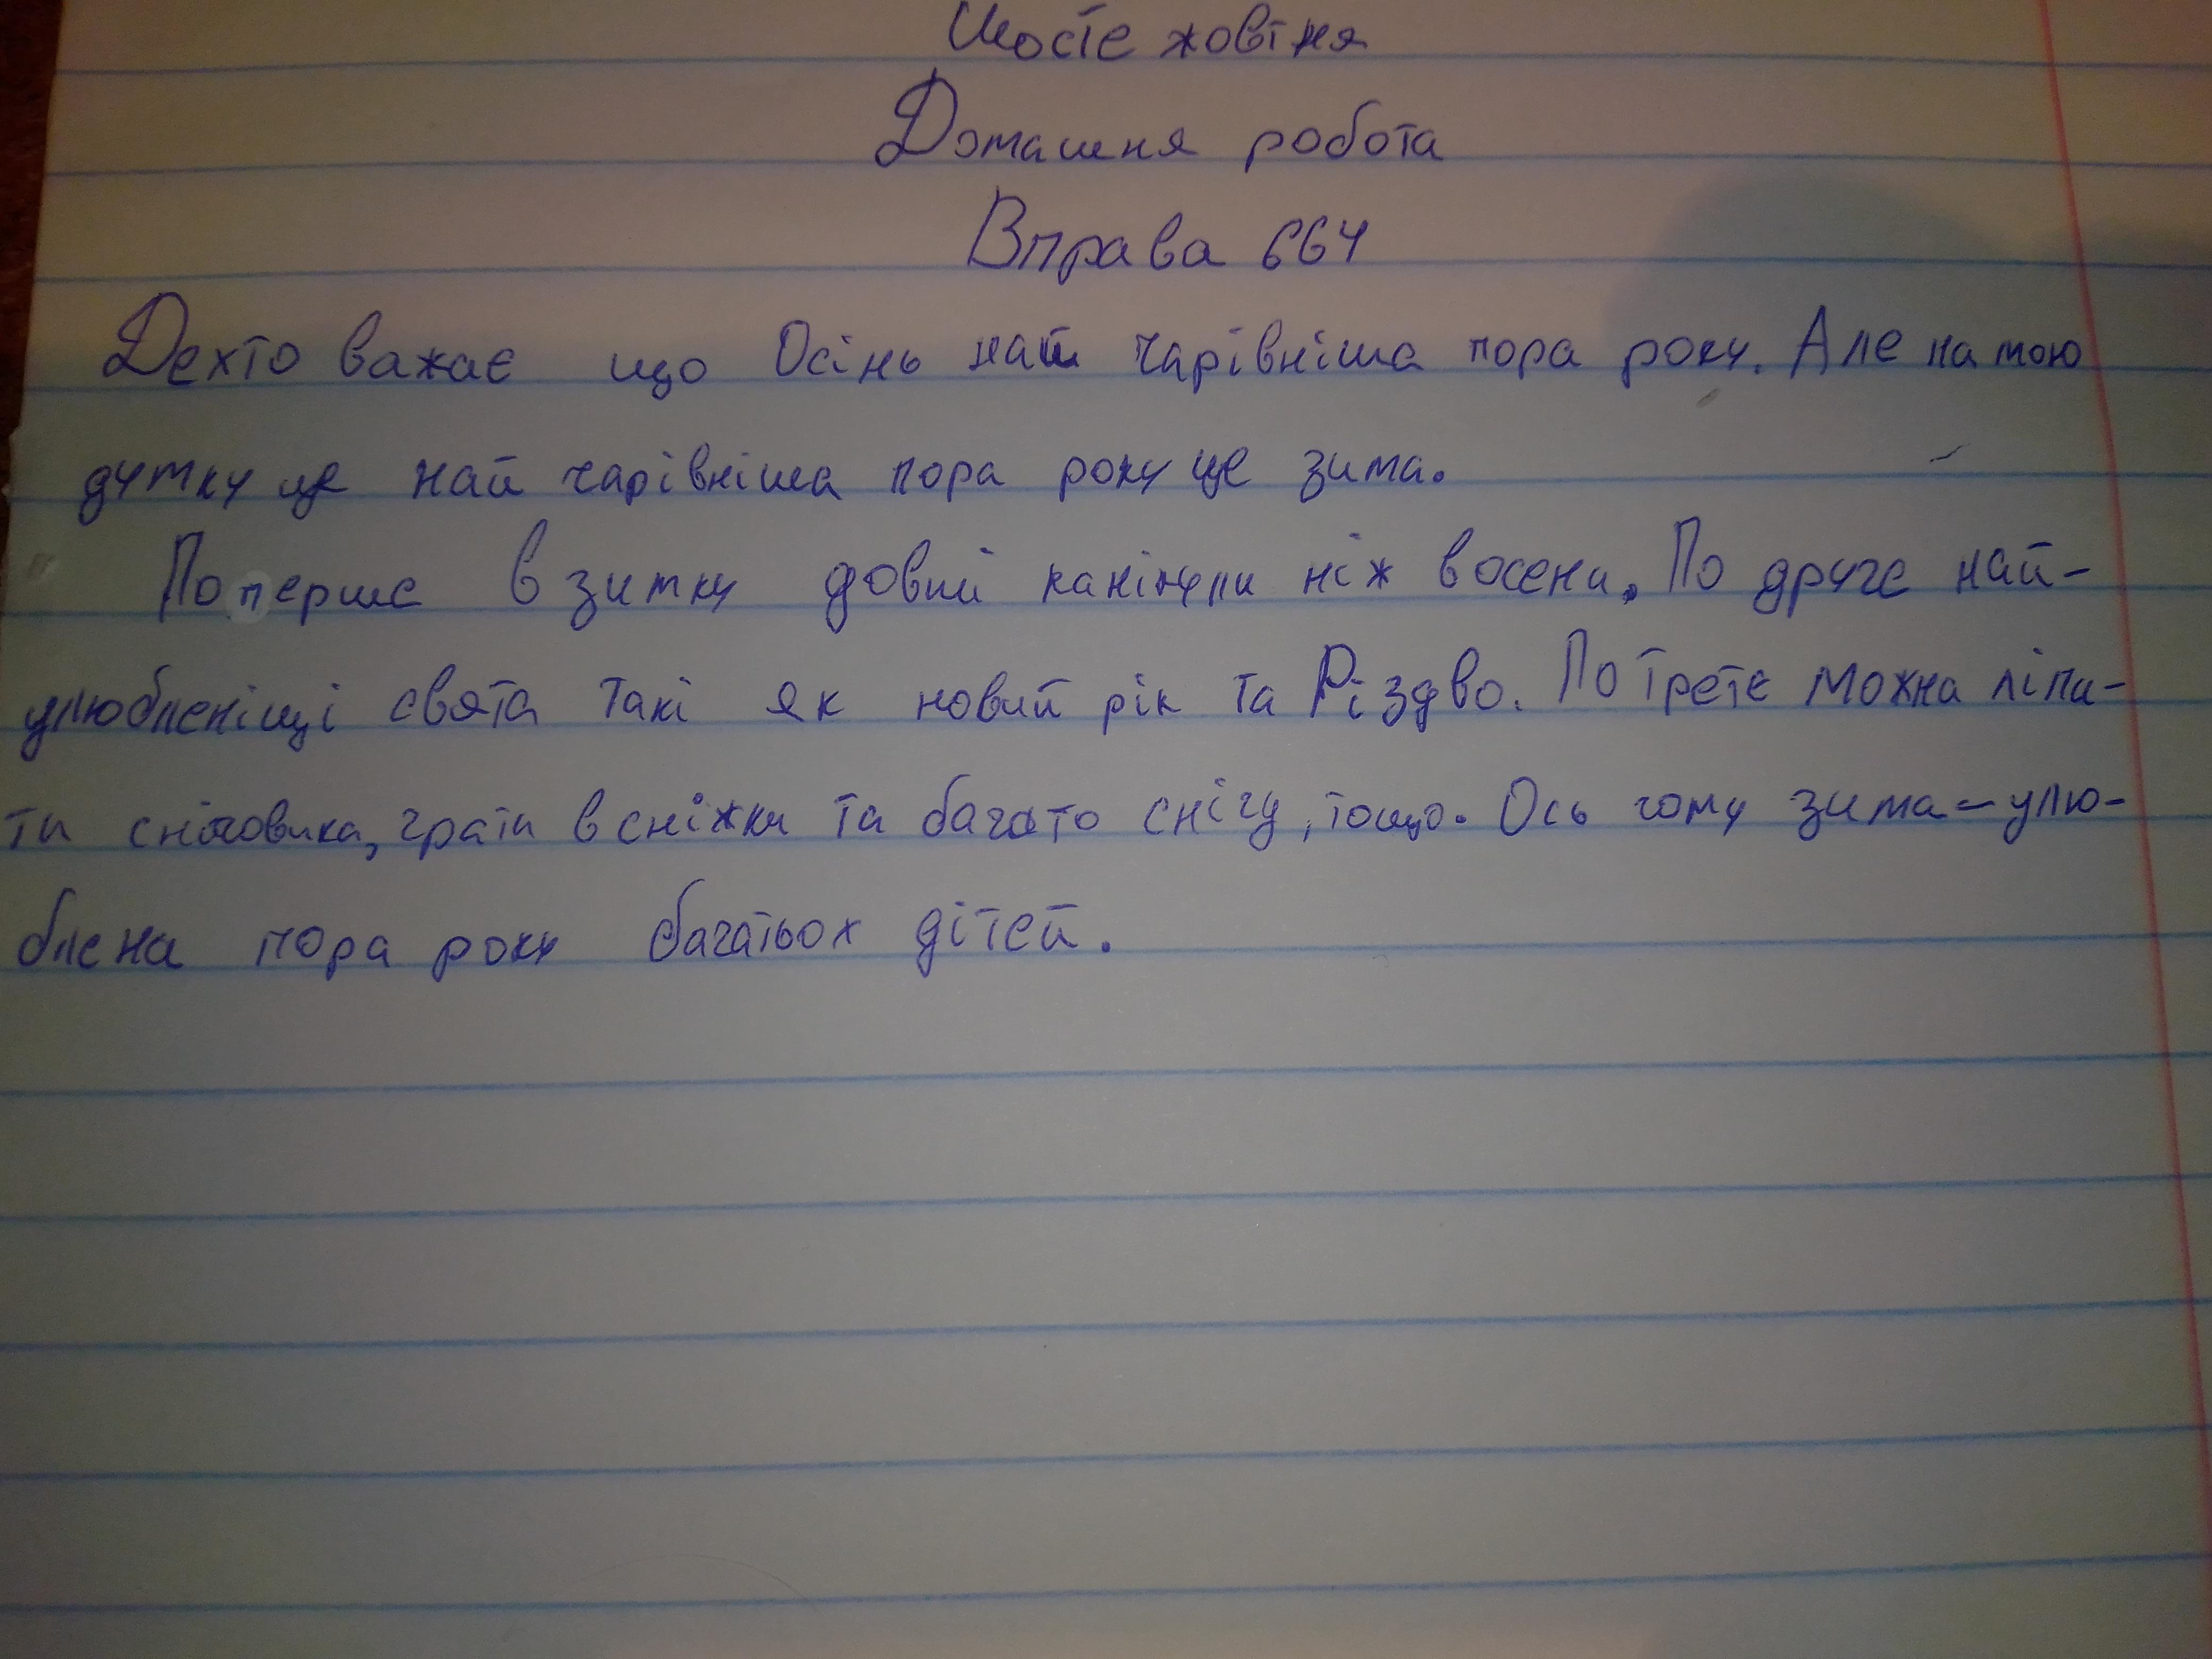 Шосте жовтня
Домашня робота
Вправа 664
Дехто важає що Осінь най чарівніша пора року. Але на мою
думку це най чарівніша пора року це зима.
По перше в зимку довші канікули ніж восени. По друге най-
улюбленіщі свята такі як новий рік та Різдво. По третє можна ліпи-
ти сніговика, грати в сніжки та багато снігу, тощо. Ось чому зима – улю-
блена пора року багатьох дітей.